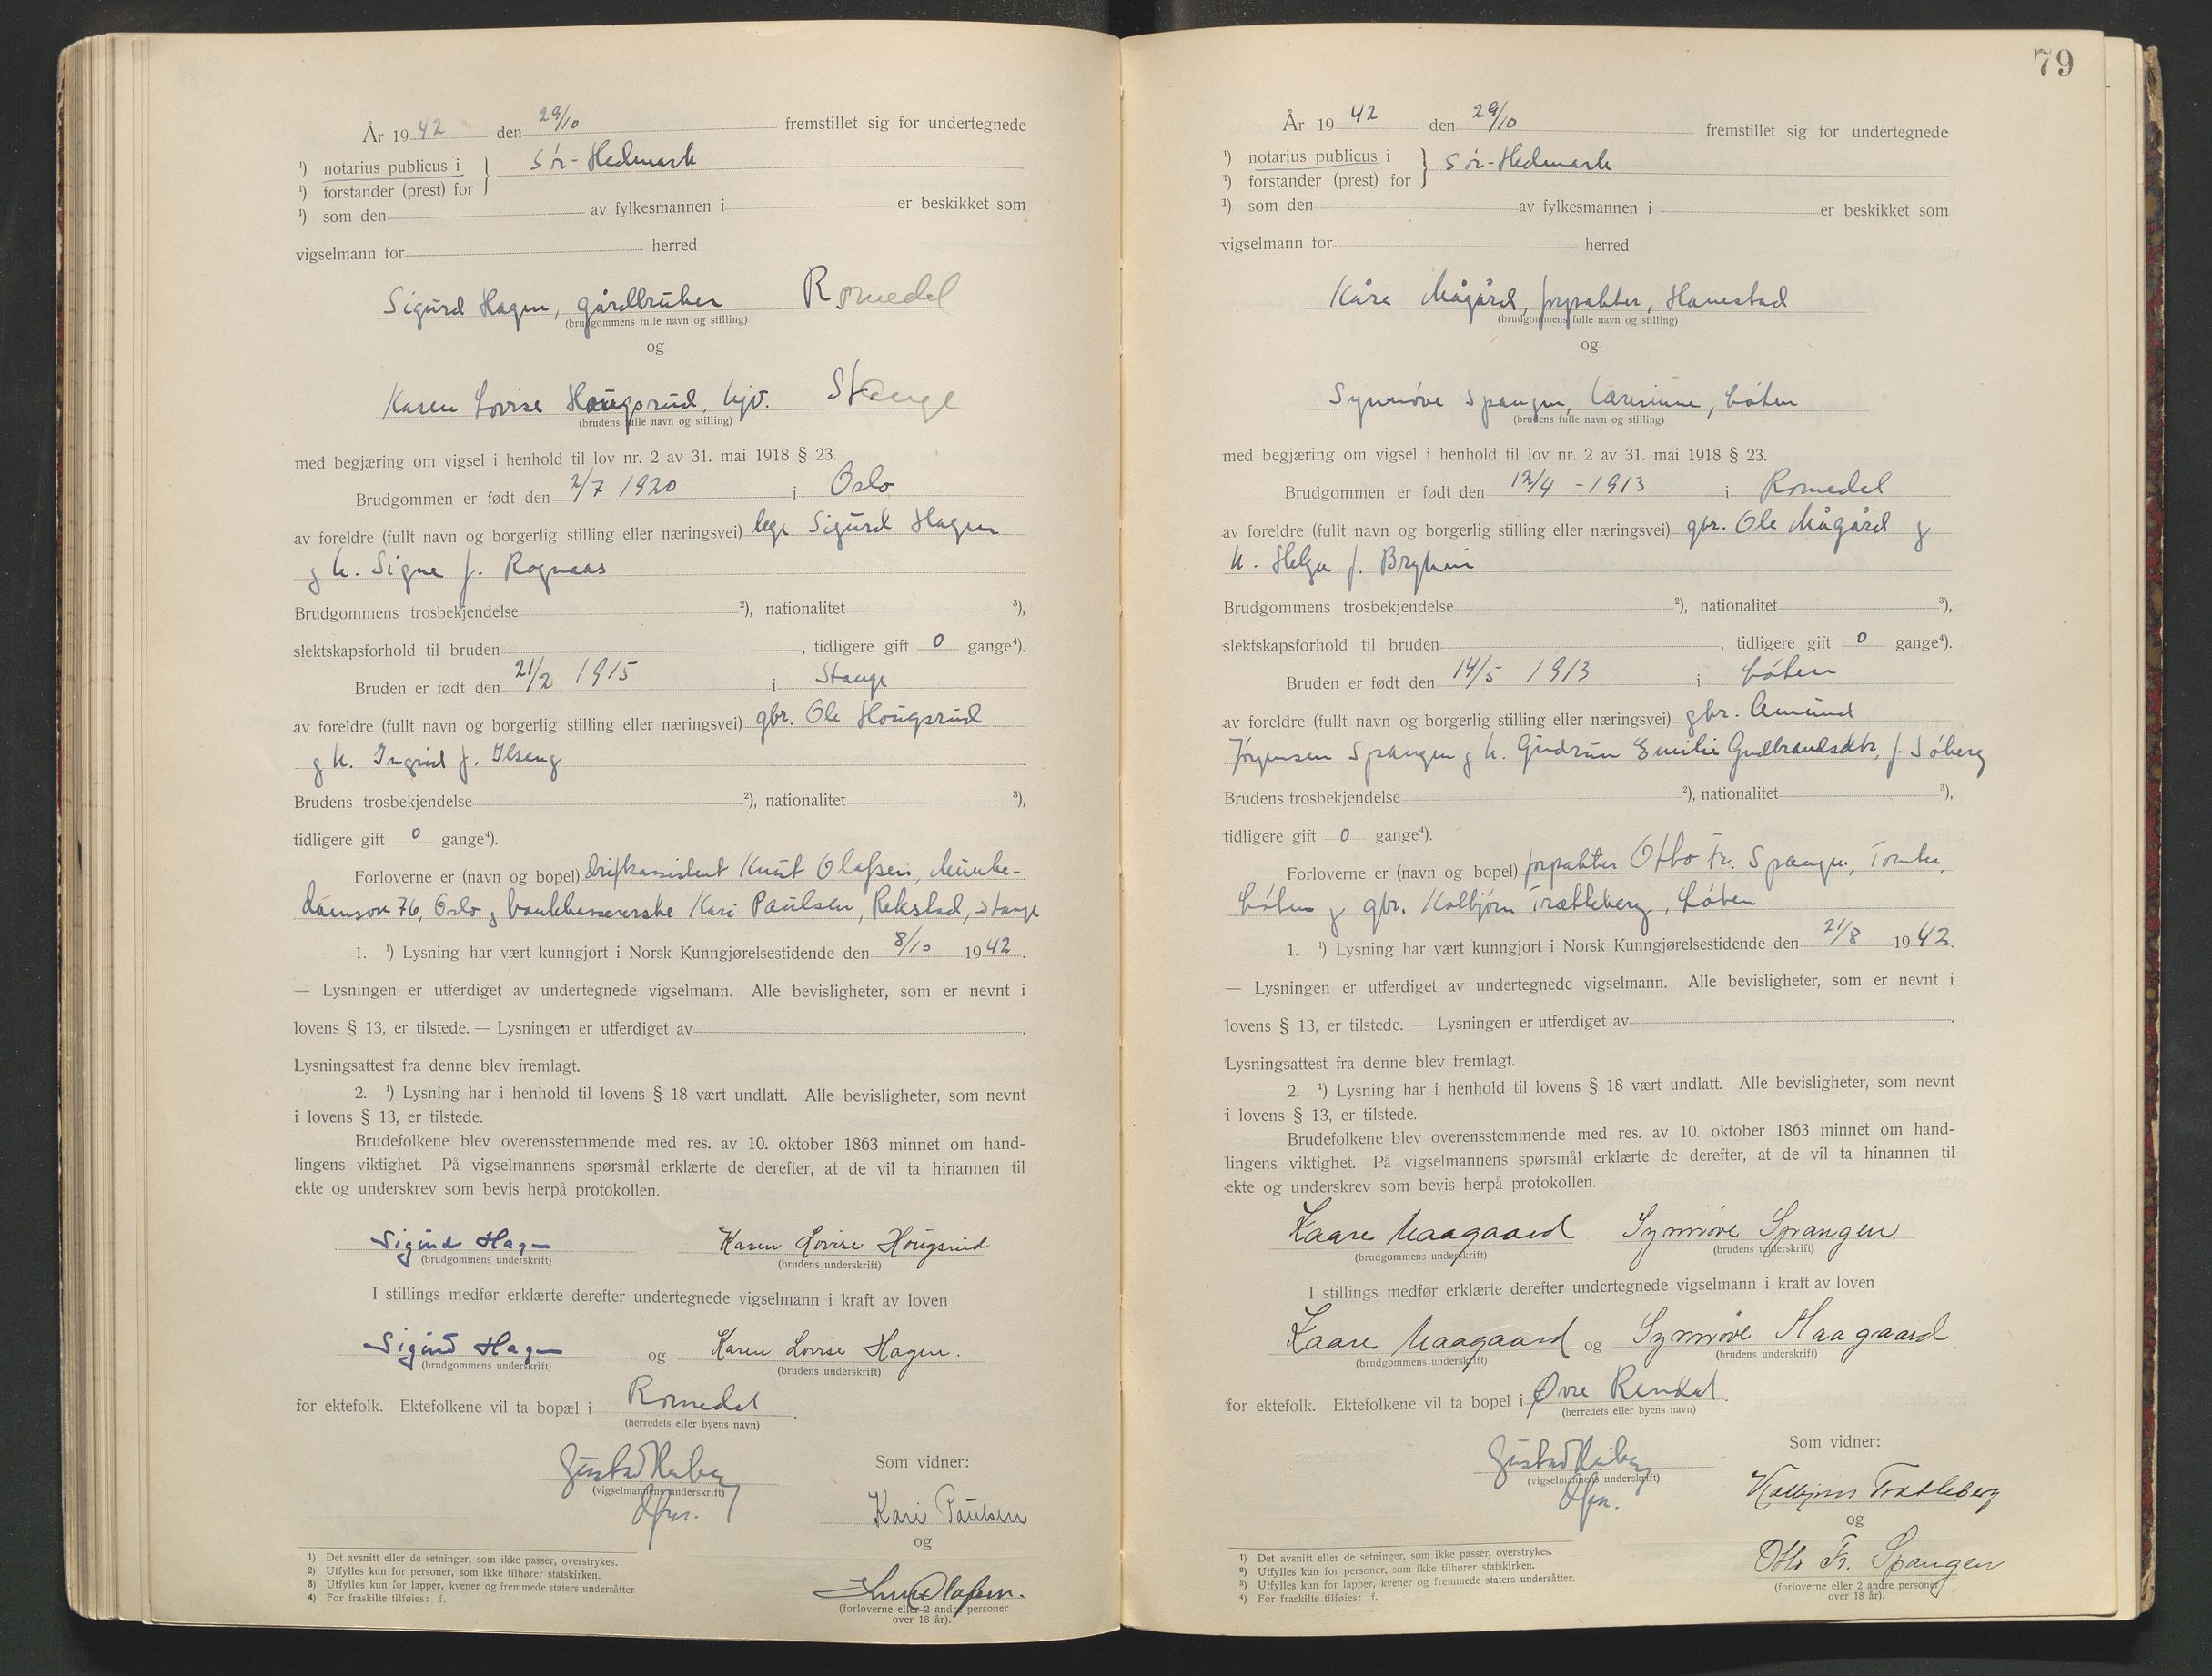 År 19 42 den 29/10 fremstillet sig for undertegnede
¹) notarius publicus i } Sør-Hedmark
¹) forstander (prest) for
¹) som den av fylkesmannen i er beskikket som
vigselmann for herred
Sigurd Hagen, gårdbruker Romedal
(brudgommens fulle navn og stilling)
og
Karen Lovise Hougsrud, hjv. Stange
(brudens fulle navn og stilling)
med begjæring om vigsel i henhold til lov nr. 2 av 31. mai 1918 § 23.
Brudgommen er født den 2/7 1920 i Oslo
av foreldre (fullt navn og borgerlig stilling eller næringsvei) lege Sigurd Hagen
og h. Signe f. Rognaas
Brudgommens trosbekjendelse ²), nationalitet ³),
slektskapsforhold til bruden , tidligere gift 0 gange⁴).
Bruden er født den 21/2 1915 i Stange
av foreldre (fullt navn og borgerlig stilling eller næringsvei) gbr. Ole Hougsrud
og h. Ingrid f. Ilseng
Brudens trosbekjendelse ²), nationalitet ³),
tidligere gift 0 gange⁴).
Forloverne er (navn og bopel) driftsassistent Knut Olafsen, Munke-
damsvn 76, Oslo og bankkassererske Kari Paulsen, Rekstad, Stange
1. ¹) Lysning har vært kunngjort i Norsk Kunngjørelsestidende den 8/10 1942.
— Lysningen er utferdiget av undertegnede vigselmann. Alle bevisligheter, som er nevnt i
lovens § 13, er tilstede. — Lysningen er utferdiget av .
Lysningsattest fra denne blev fremlagt.
2. ¹) Lysning har i henhold til lovens § 18 vært undlatt. Alle bevisligheter, som nevnt
i lovens § 13, er tilstede.
Brudefolkene blev overensstemmende med res. av 10. oktober 1863 minnet om hand-
lingens viktighet. På vigselmannens spørsmål erklærte de derefter, at de vil ta hinannen til
ekte og underskrev som bevis herpå protokollen.
Sigurd Hagen Karen Lovise Hougsrud
(brudgommens underskrift) (brudens underskrift)
I stillings medfør erklærte derefter undertegnede vigselmann i kraft av loven
Sigurd Hagen og Karen Lovise Hagen.
(brudgommens underskrift) (brudens underskrift)
for ektefolk. Ektefolkene vil ta bopæl i Romedal.
(herredets eller byens navn)
Gustad Heiberg Som vidner:
(vigselmannens underskrift)
Kari Paulsen
og
Knut Olafsen.
(forloverne eller 2 andre personer
over 18 år).
¹) Det avsnitt eller de setninger, som ikke passer, overstrykes.
²) Utfylles kun for personer, som ikke tilhører statskirken.
³) Utfylles kun for lapper, kvener og fremmede staters undersåtter
⁴) For fraskilte tilføies: f.
79
År 19 42 den 29/10 fremstillet sig for undertegnede
¹) notarius publicus i } Sør-Hedmark
¹) forstander (prest) for
¹) som den av fylkesmannen i er beskikket som
vigselmann for herred
Kåre Mågård, forpakter, Hanestad
(brudgommens fulle navn og stilling)
og
Synnøve Spangen, lærerinne, Løten
(brudens fulle navn og stilling)
med begjæring om vigsel i henhold til lov nr. 2 av 31. mai 1918 § 23.
Brudgommen er født den 12/4 - 1913 i Romedal
av foreldre (fullt navn og borgerlig stilling eller næringsvei) gbr. Ole Mågård og
h. Helga f. Bryhni
Brudgommens trosbekjendelse ²), nationalitet ³),
slektskapsforhold til bruden , tidligere gift 0 gange⁴).
Bruden er født den 14/5 1913 i Løten
av foreldre (fullt navn og borgerlig stilling eller næringsvei) gbr. Amund
Jørgensen Spangen og h. Gudrun Emilie Gudbrandsdtr, f. Søberg
Brudens trosbekjendelse ²), nationalitet ³),
tidligere gift 0 gange⁴).
Forloverne er (navn og bopel) forpakter Otto Fr. Spangen, Tomter,
Løten og gbr. Kolbjørn Trætteberg, Løten
1. ¹) Lysning har vært kunngjort i Norsk Kunngjørelsestidende den 21/8 1942.
— Lysningen er utferdiget av undertegnede vigselmann. Alle bevisligheter, som er nevnt i
lovens § 13, er tilstede. — Lysningen er utferdiget av .
Lysningsattest fra denne blev fremlagt.
2. ¹) Lysning har i henhold til lovens § 18 vært undlatt. Alle bevisligheter, som nevnt
i lovens § 13, er tilstede.
Brudefolkene blev overensstemmende med res. av 10. oktober 1863 minnet om hand-
lingens viktighet. På vigselmannens spørsmål erklærte de derefter, at de vil ta hinannen til
ekte og underskrev som bevis herpå protokollen.
Kaare Maagaard Synnøve Spangen
(brudgommens underskrift) (brudens underskrift)
I stillings medfør erklærte derefter undertegnede vigselmann i kraft av loven
Kaare Maagaard og Synnøve Maagaard.
(brudgommens underskrift) (brudens underskrift)
for ektefolk. Ektefolkene vil ta bopel i Øvre Rendal.
(herredets eller byens navn)
Gustad Heiberg Som vidner:
(vigselmannens underskrift)
Kolbjørn Trætteberg
og
Otto Fr. Spangen
(forloverne eller 2 andre personer
over 18 år).
¹) Det avsnitt eller de setninger, som ikke passer, overstrykes.
²) Utfylles kun for personer, som ikke tilhører statskirken.
³) Utfylles kun for lapper, kvener og fremmede staters undersåtter.
⁴) For fraskilte tilføies: f.